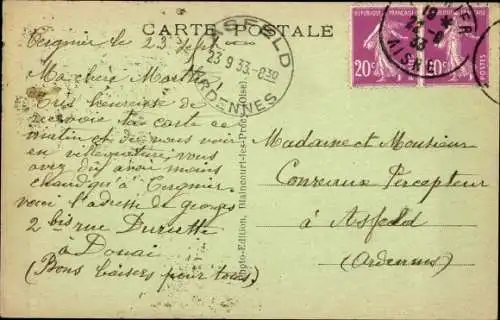 CARTE POSTALE
Tergnier le 23 Sept
Ma chère Marthe
Très heureuse de
recevoir ta carte ce
matin et de vous voir
en villégiature vous
avez dû avoir moins
chaud qu'à Tergnier
voici l'adresse de georges
2 bis rue
à Douai
(Bons baisers pour tous)
ASFELD
23 9 33 - 8 30
ARDENNES
Photo-Edition, Blaincourt-les-Précy (Oise).
REPUBLIQUE FRANÇAISE
20c
POSTES
33
AISNE
Madame et Monsieur
Percepteur
à Asfeld
(Ardennes)